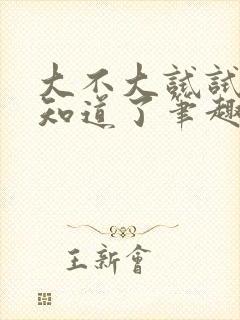 大不大試試
知道了筆趣
王新會